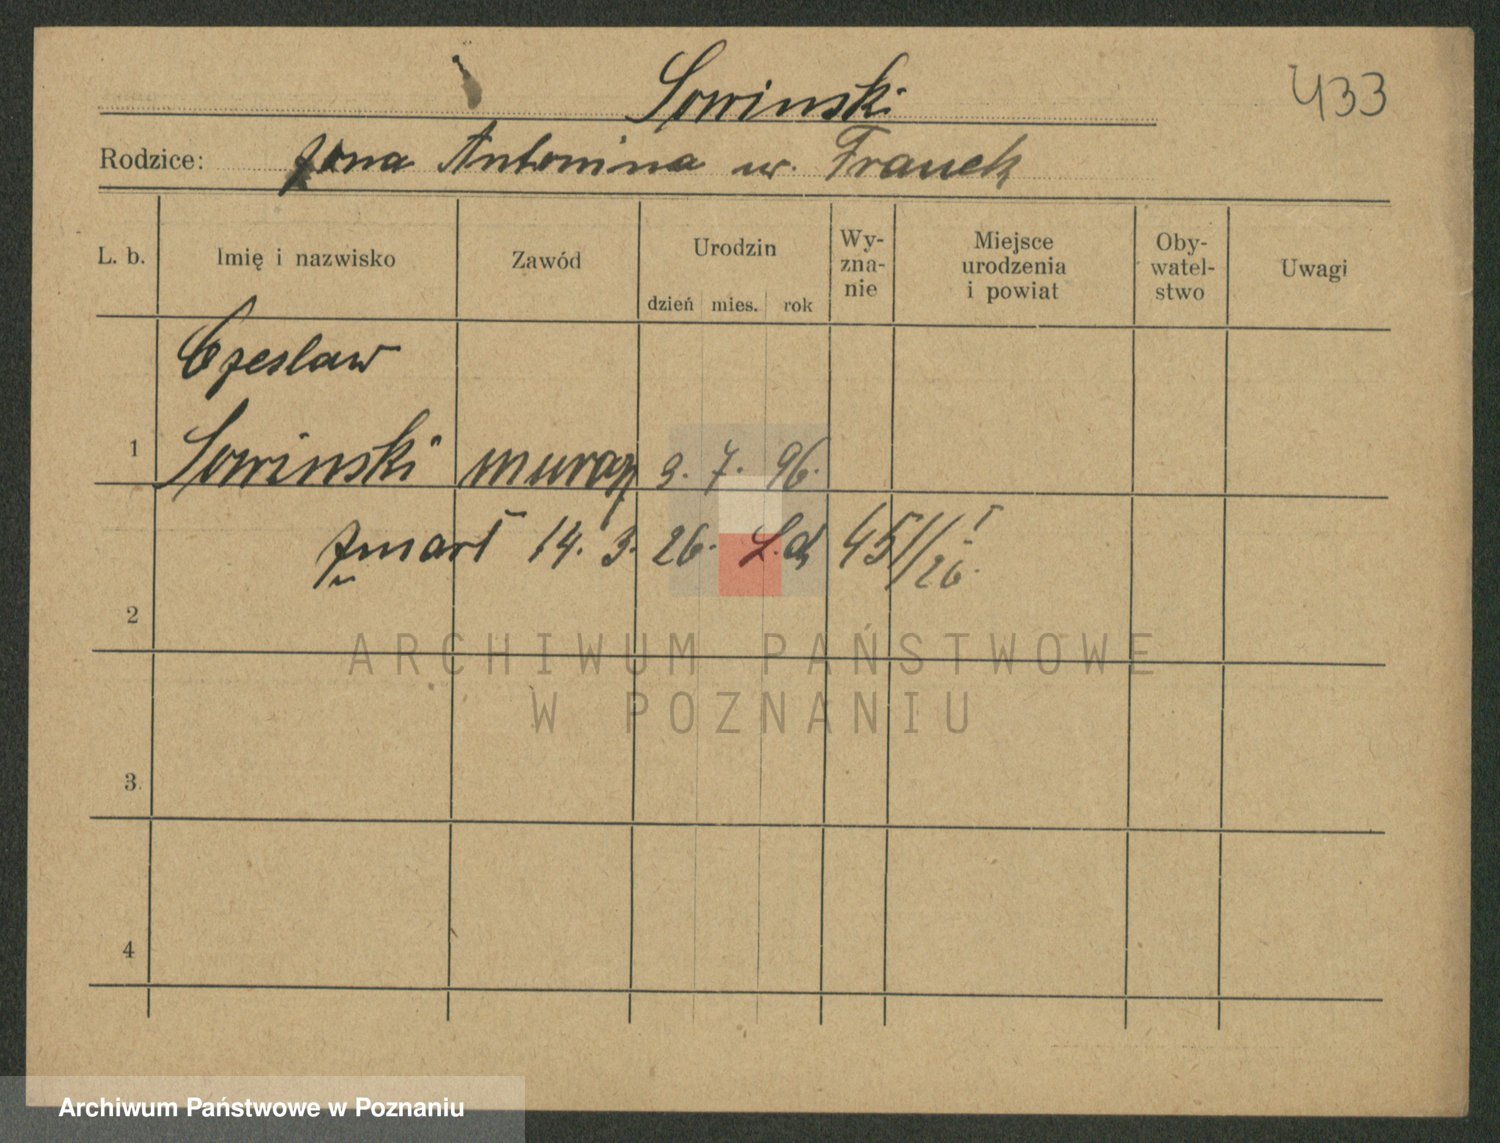 433
Sowinski
Rodzice: żona Antonina ur. Franek
L. b. Imię i nazwisko Zawód Urodzin dzień mies. rok Wy-zna-nie Miejsce urodzenia i powiat Oby-watel-stwo Uwagi
Czeslaw
1 Sowinski muraz 9. 7. 96.
zmarł 14. 3. 26. L. d, 451/I 26.
2
ARCHIWUM PAŃSTWOWE
W POZNANIU
3.
4
Archiwum Państwowe w Poznaniu